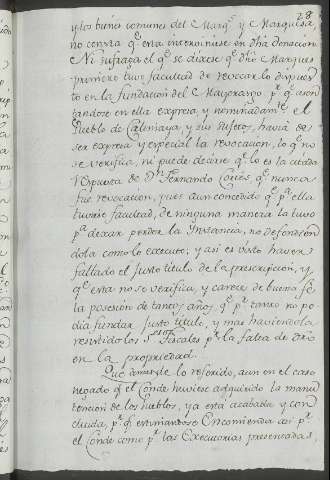 28
y los bienes comunes del Marq.s y Marquesa,
no consta q.e esta interviniese en dha donacion
Ni sufraga el q.e se dixese q.e dho Marques
primero tuvo facultad de revocar lo dispues
to en la fundacion del Mayorazgo p.r q.e asen
tandose en ella expresa, y nominadam.te el
Pueblo de Calimaya, y sus sujetos, havia de
ser expresa y especial la revocacion, lo q.e no
se verifica, ni puede decirse q.e lo es la citada
respuesta de D.n Fernando Cortes q.e nunca
fue revocacion, pues aun concedido q.e p.a ella
tuviese facultad, de ninguna manera la tuvo
p.a dexar perder la Instancia, no defendien
dola como lo executo; y asi es visto haver
faltado el Justo titulo de la prescripcion, y
q.e esta no se verifica, y carece de buena fe
la posesion de tantos años, q.e p.r tanto no po
dia fundar Justo titulo, y mas haviendola
resistido los S.res Fiscales p.r la falta de dro
en la propriedad.
Que demas de lo referido, aun en el caso
negado q.e el Conde huviese adquirido la manu
tencion de los Pueblos, ya esta acabada y con
cluida, p.r q.e estimandose Encomienda asi p.r
el Conde como p.r las Executorias presentadas,